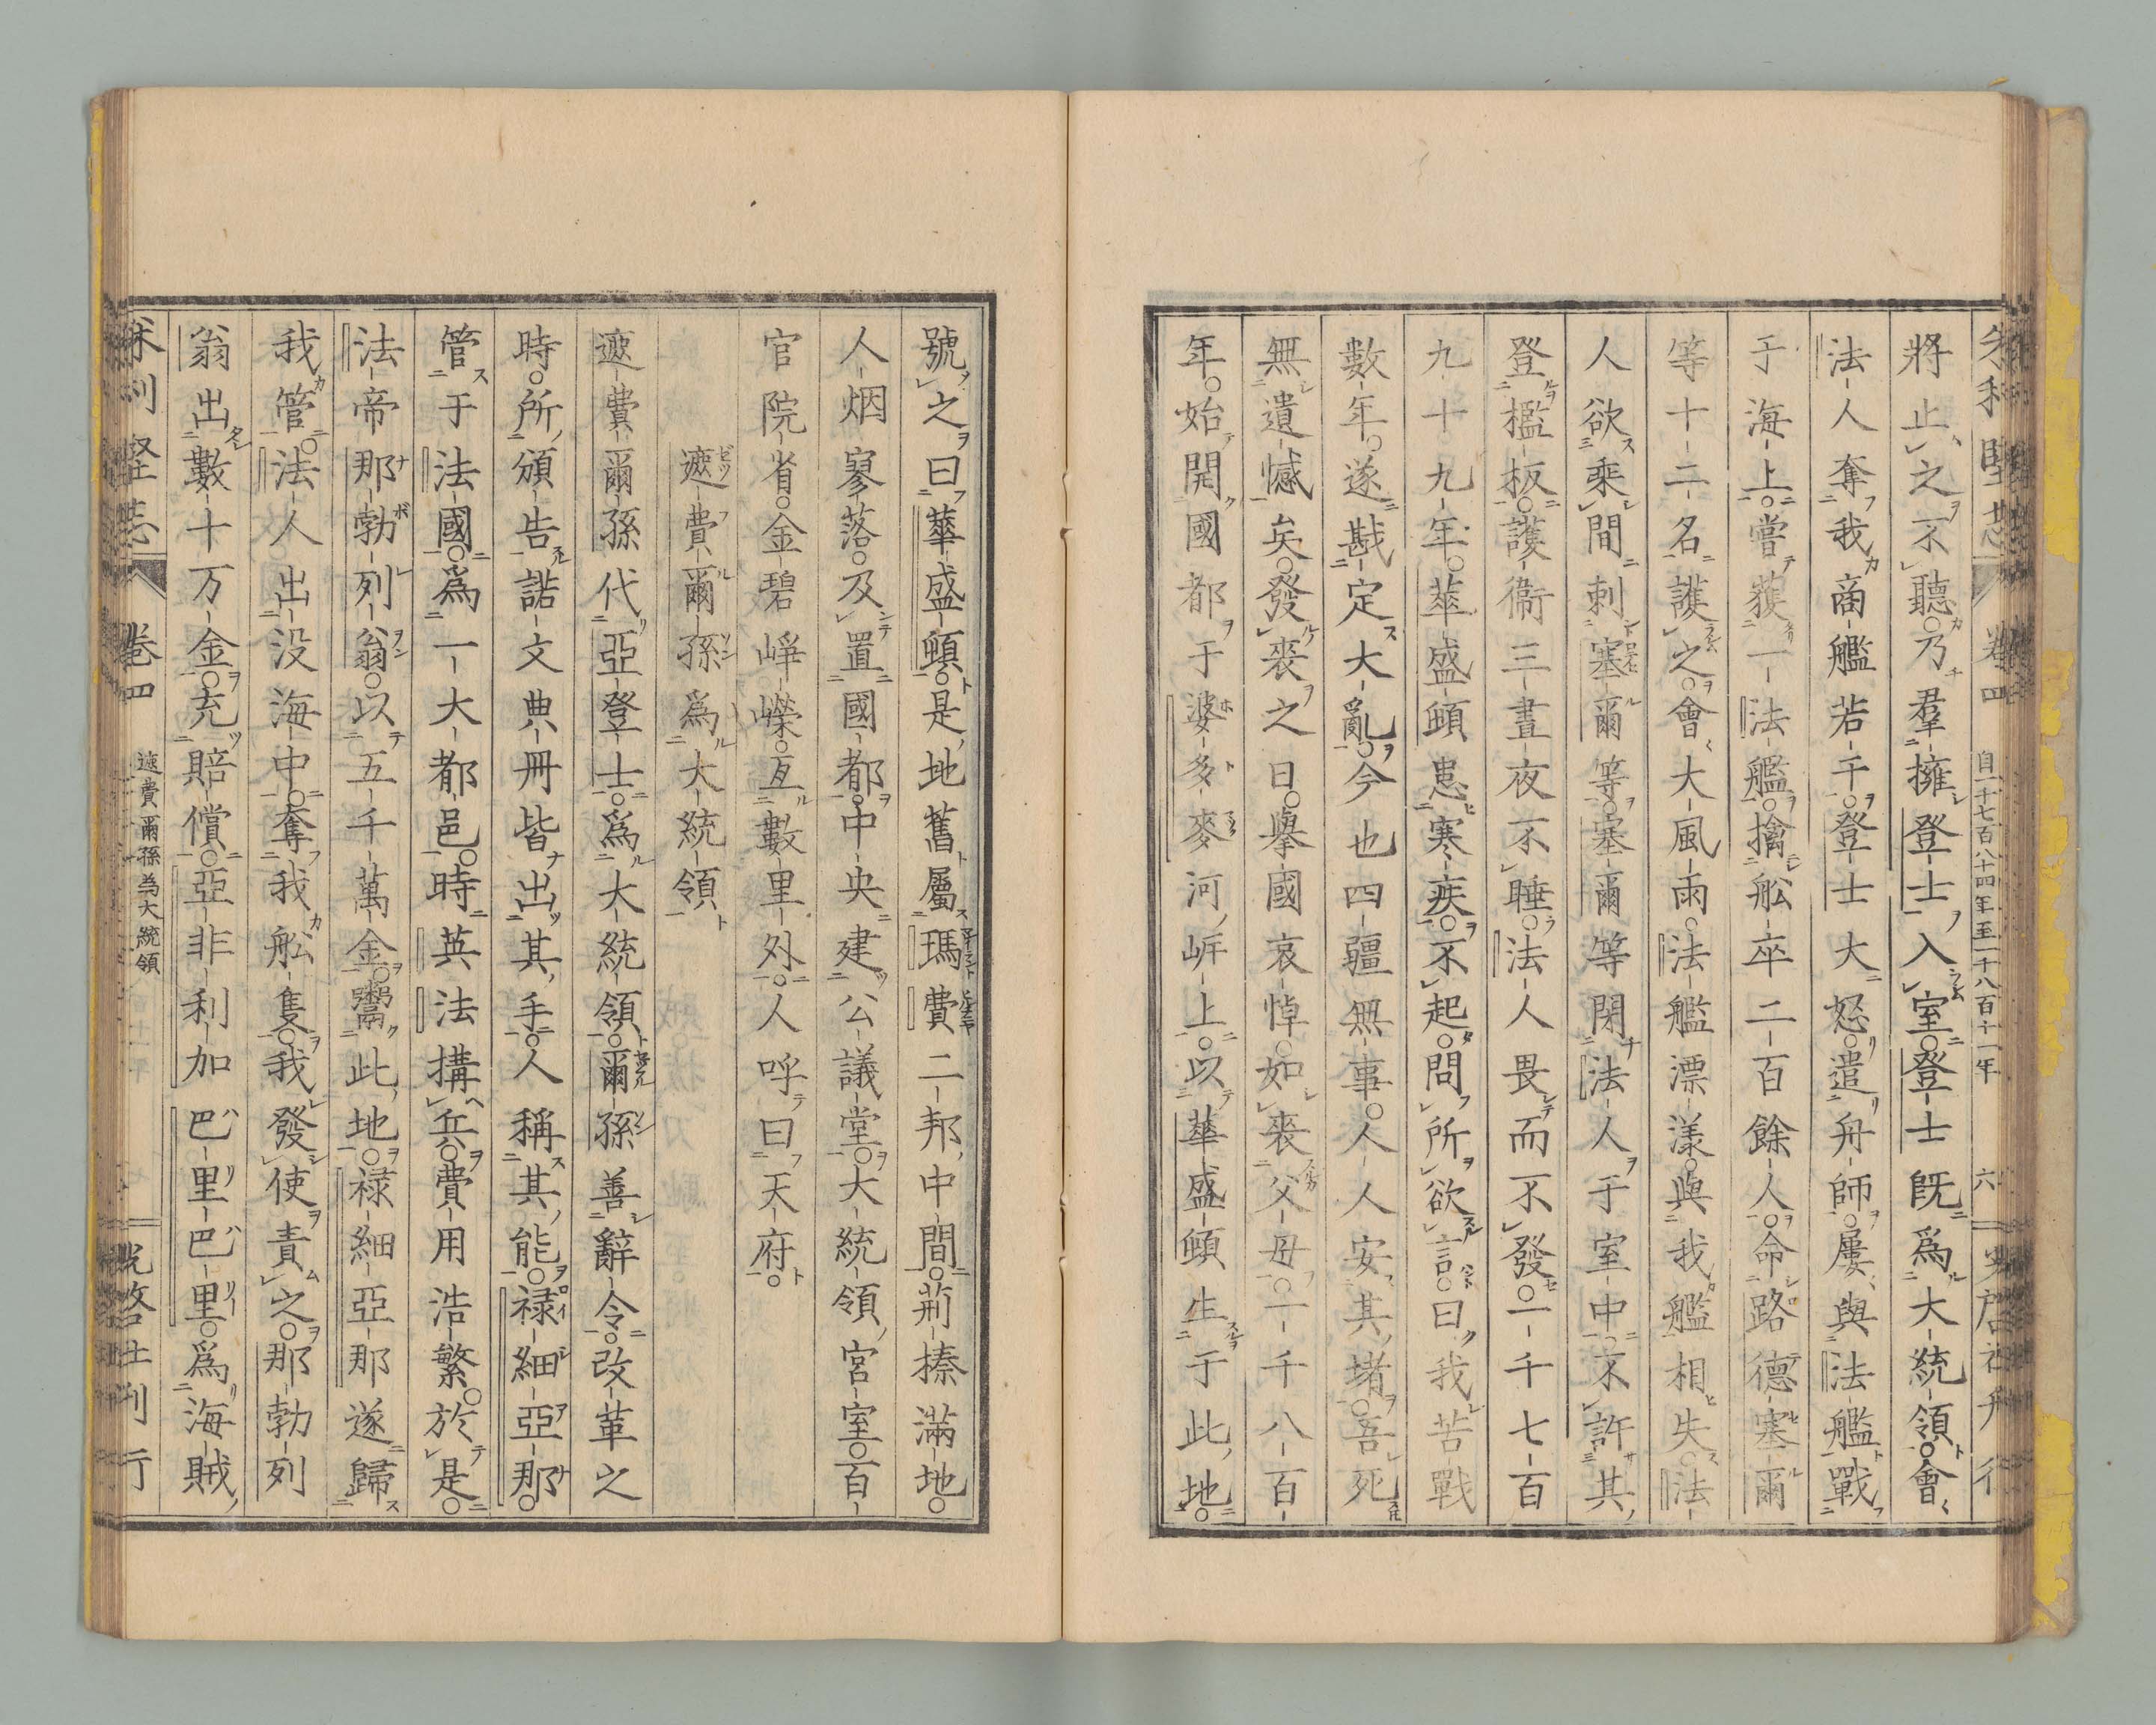 米利堅志 卷四 自一千七百八十四年至一千八百十一年 六 光啓社刊行
將止之不聽乃羣擁登士入室登士既爲大統領會
法人奪我商艦若干登士大怒遣舟師屢與法艦戰
于海上嘗獲一法艦擒舩卒二百餘人命路德塞爾
等十二名護之會大風雨法艦漂漾與我艦相失法
人欲乘間刺塞爾等塞爾等閉法人于室中不許其
登檻板護衞三晝夜不睡法人畏而不發一千七百
九十九年華盛頓患寒疾不起問所欲言曰我苦戰
數年遂戡定大亂今也四疆無事人人安其堵吾死
無遺憾矣發喪之日擧國哀悼如喪父母一千八百
年始開國都于婆多麥河岸上以華盛頓生于此地
號之曰華盛頓是地舊屬瑪費二邦中間荊榛滿地
人烟寥落及置國都中央建公議堂大統領宮室百
官院省金碧崢嶸亙數里外人呼曰天府
遮費爾孫爲大統領
遮費爾孫代亞登士爲大統領爾孫善辭令改革之
時所頒告諸文典冊皆出其手人稱其能祿細亞那
管于法國爲一大都邑時英法搆兵費用浩繁於是
法帝那勃列翁以五千萬金鬻此地祿細亞那遂歸
我管法人出没海中奪我舩隻我發使責之那勃列
翁出數十万金充賠償亞非利加巴里巴里爲海賊
米利堅志 卷四 遮費爾孫爲大統領 光啓社刊行